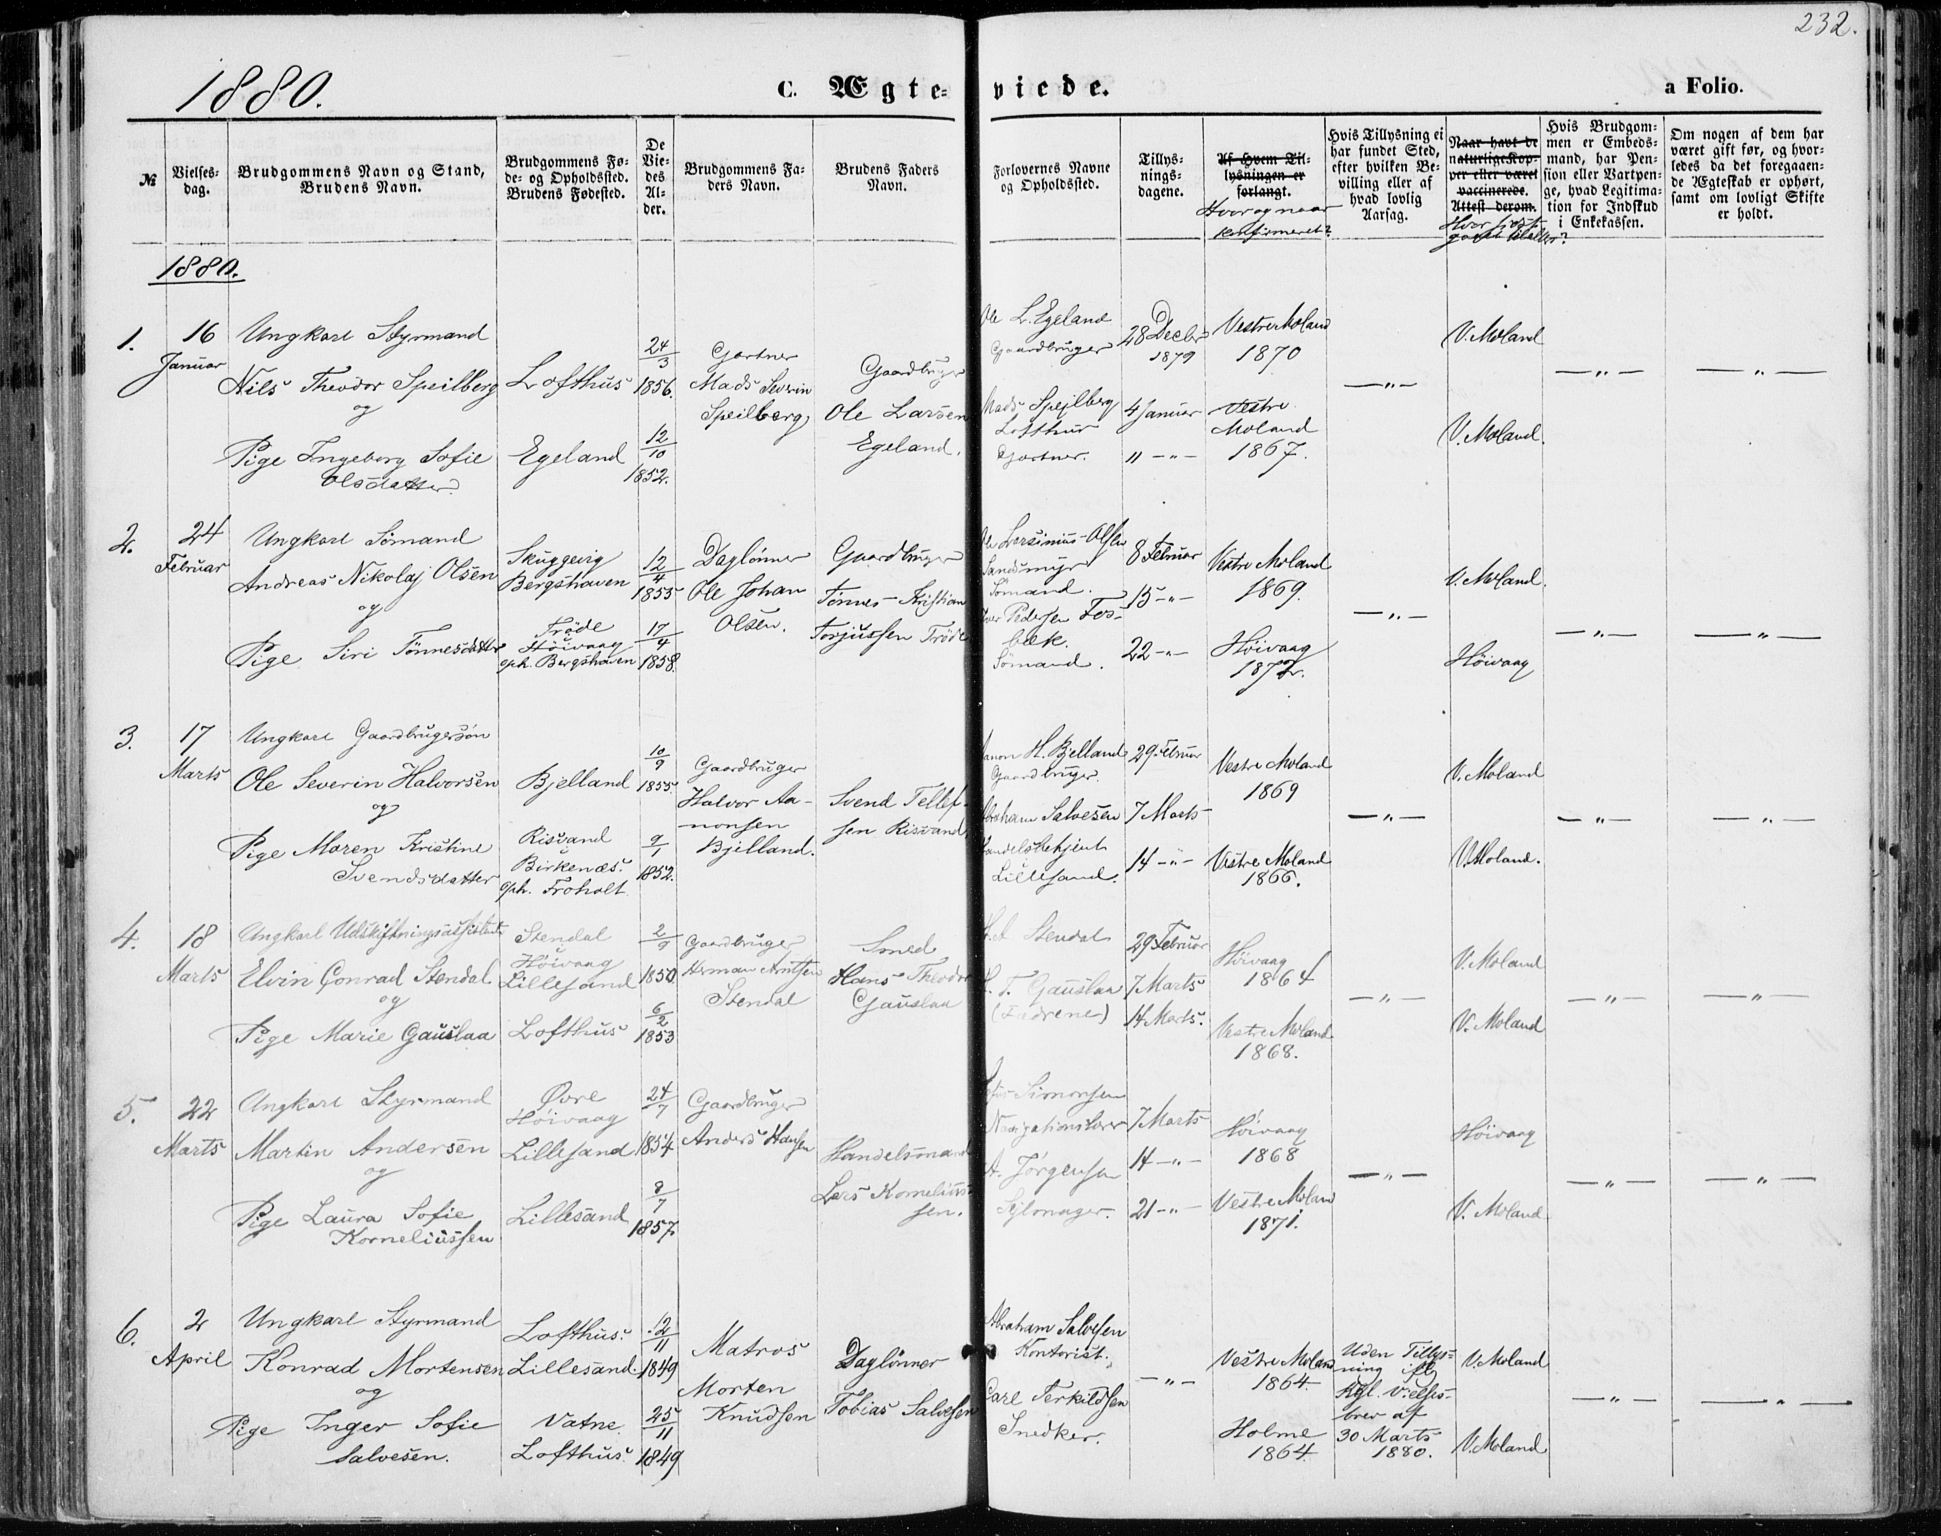 232.
1880.
C. Ægte-
viede.
a Folio.
№
Vielses-
dag.
Brudgommens Navn og Stand,
Brudens Navn.
Brudgommens Fø-
de- og Opholdssted.
Brudens Fødested.
De
Vie-
des
Al-
der.
Brudgommens Fa-
ders Navn.
Brudens Faders
Navn.
Forlovernes Navne
og Opholdssted.
Tillys-
nings-
dagene.
Af Hvem Til-
lysningen er
forlangt.
Hvor og naar
konfirmeret?
Hvis Tillysning ei
har fundet Sted,
efter hvilken Be-
villing eller af
hvad lovlig
Aarsag.
Naar havt de
naturlige Kop-
per eller været
vaccinerede.
Attest derom.
Hvis Brudgom-
men er Embeds-
mand, har Pen-
sion eller Vartpen-
ge, hvad Legitima-
tion for Indskud
i Enkekassen.
Om nogen af dem har
været gift før, og hvor-
ledes da det foregaaen-
de Ægteskab er ophørt,
samt om lovligt Skifte
er holdt.
1880.
1.
16
Januar
Ungkarl Styrmand
Nils Theodor Speilberg
og
Pige Ingeborg Sofie
Olsdatter.
Lofthus
Egeland
24/3
1856.
12/10
1852.
Gartner
Mads Severin
Speilberg
Gaardbruger
Ole Larsen
Egeland.
Ole L. Egeland
Gaardbruger
Mads Spejlberg
Lofthus
Gartner.
28 Decbr
1879
4 Januar
11 -"-
Vestre Moland
1870
Vestre
Moland
1867.
-"-
V. Moland
V. Moland.
-"-
-"-
2.
24
Februar
Ungkarl Sømand
Andreas Nikolaj Olsen
og
Pige Siri Tönnesdatter
Skuggevig
Bergshaven
Tröde
Höivaag
oph. Bergshaven
12/4
1855
17/4
1858.
Daglönner
Ole Johan
Olsen.
Gaardbruger
Tönnes Kristian
Torjussen Tröde
Olsen
Sandsmyr
Sømand.
Pedersen Fos-
bæk.
Sømand.
8 Februar
15 -"-
22 -"-
Vestre Moland
1869.
Höivaag
1872.
-"-
V. Moland.
Höivaag
-"-
-"-
3.
17
Marts
Ungkarl Gaardbrugersøn
Ole Severin Halvorsen
og
Pige Maren Kristine
Svendsdatter
Bjelland
Risvand
Birkenæs.
oph. Froholt
10/9
1855.
9/1
1852.
Gaardbruger
Halvor Aa-
nonsen
Bjelland.
Svend Tellef-
sen Risvand
Aanon H. Bjelland
Gaardbruger.
Abraham Salvesen
Handelsbetjent
Lillesand.
29 Februar
7 Marts
14 -"-
Vestre Moland
1869
Vestre Moland
1866.
-"-
V. Moland
V. Moland.
-"-
-"-
4.
18
Marts
Ungkarl Udskiftningsassistent
Elvin Conrad Stendal
og
Pige Marie Gauslaa
Stendal
Höivaag
Lillesand
Lofthus
2/9
1850.
6/2
1853
Gaardbruger
Herman Arntsen
Stendal
Smed
Hans Theodor
Gauslaa
H. A Stendal
H. T. Gauslaa
(Fædrene)
29 Februar
7 Marts
14 Marts.
Höivaag
1864
Vestre Moland
1868.
-"-
V. Moland
V. Moland
-"-
-"-
5.
22
Marts
Ungkarl Styrmand
Martin Andersen
og
Pige Laura Sofie
Korneliussen
Øvre
Höivaag
Lillesand
Lillesand
24/7
1854
8/7
1857.
Gaardbruger
Anders Hansen
Handelsmand
Lars Kornelius-
sen.
Simonsen
Navigationslærer
A. Jörgensen
Sejlmager.
7 Marts
14 -"-
21 -"-
Höivaag
1868
Vestre Moland
1871.
-"-
Höivaag
V. Moland.
-"-
-"-
6.
2
April
Ungkarl Styrmand
Konrad Mortensen
og
Pige Inger Sofie
Salvesen.
Lofthus.
Lillesand.
Vatne
Lofthus.
12/11
1849
25/11
1849
Matros
Morten
Knudsen
Daglönner
Tobias Salvesen
Abraham Salvesen
Kontorist.
Carl Terkildsen
Snedker.
-"-
Vestre Moland
1864.
Holme
1864.
Uden Tillys-
ning ifl
Kgl. Vielses-
brev af
30 Marts
1880.
V. Moland
V. Moland
-"-
-"-